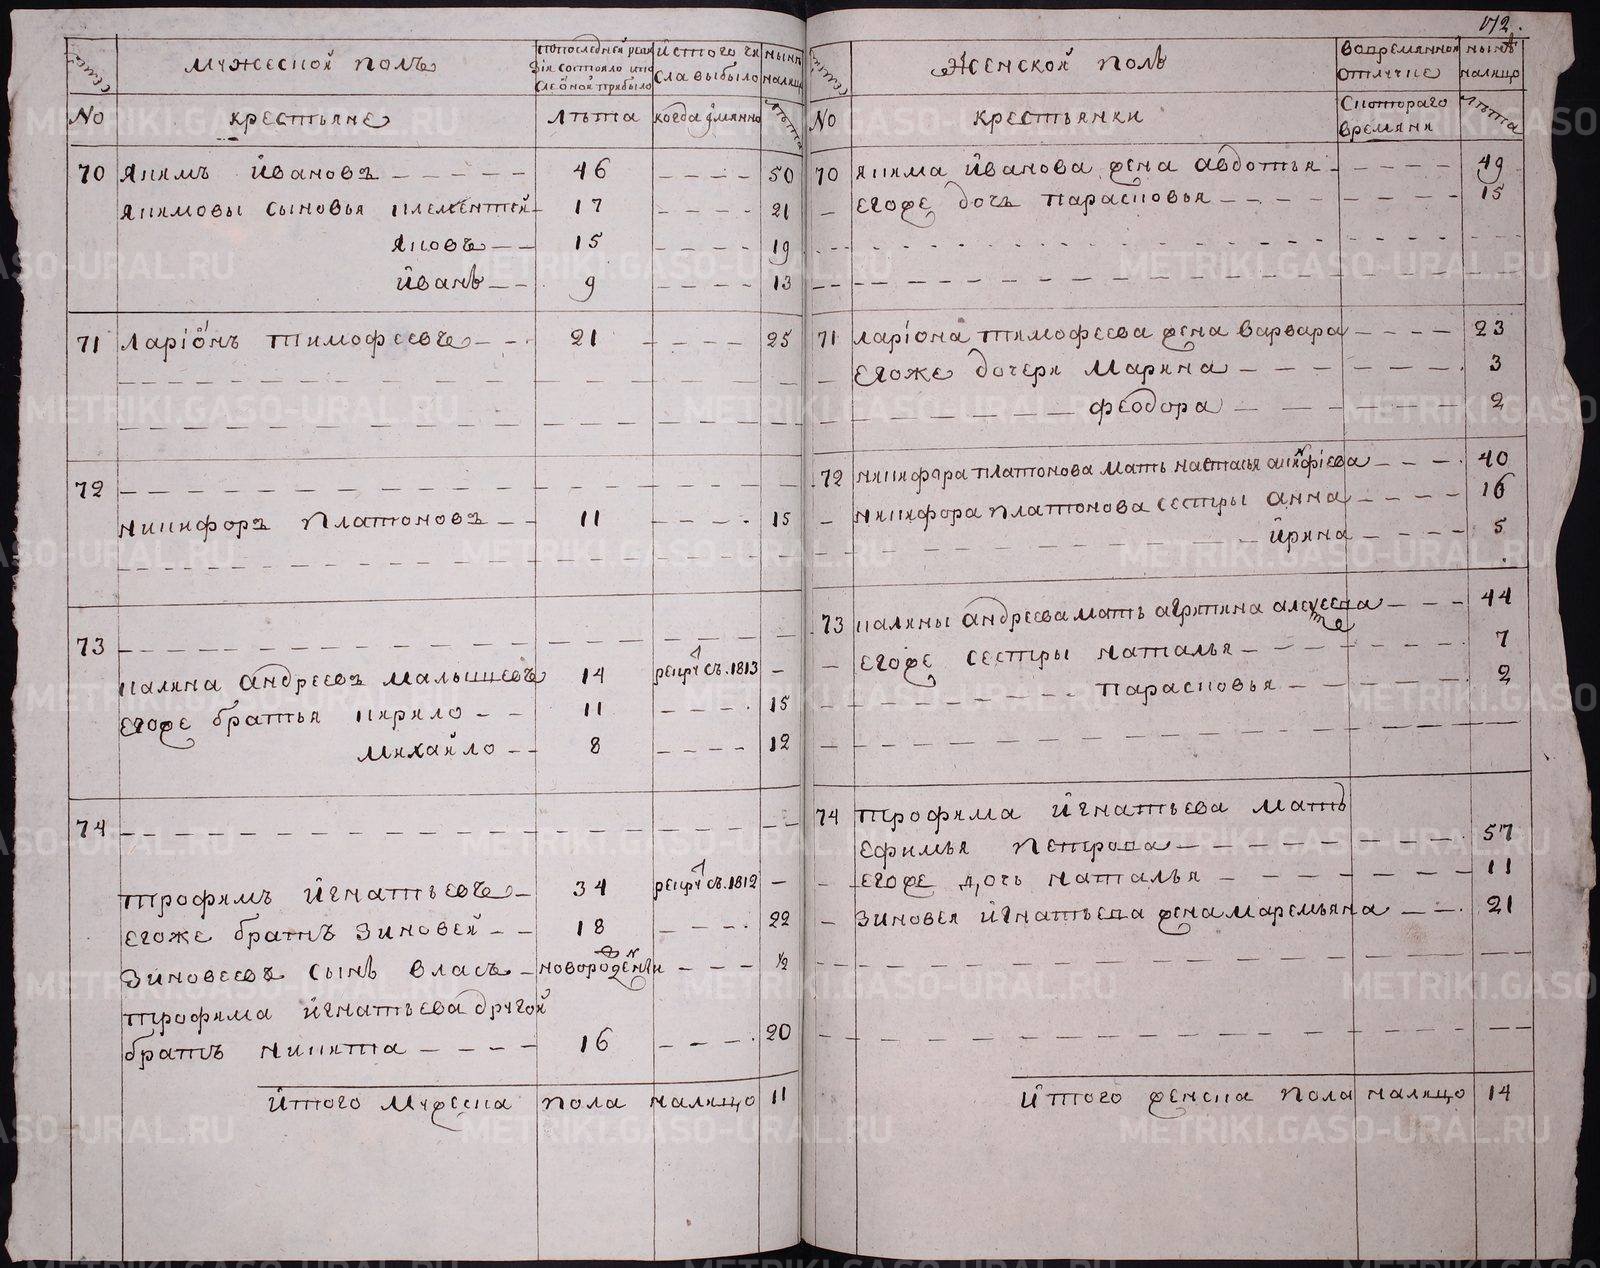 172.
семьи
Мужеской полъ
По последней реви
зіи состояло и по
сле оной прибыло
Ис того чи
сла выбыло
ныне
налицо
No
крестьяне
Лѣта
когда имянно
Лѣта
70 Якимъ Ивановъ 46 50
Якимовы сыновья Клементей 17 21
Яковъ 15 19
Иванъ 9 13
71 Ларіонъ Тимофеевъ 21 25
72
Никифоръ Платоновъ 11 15
73
Калина Андреевъ Малышевъ 14 рекрутъ съ 1813
Егоже братья Кирило 11 15
Михайло 8 12
74
Трофимъ Игнатьевъ 34 рекрутъ съ 1812
Егоже братъ Зиновей 18 22
Зиновеевъ сынъ Власъ новорожденъ ½
Трофима Игнатьева другой
братъ Никита 16 20
Итого мужеска пола налицо 11
семьи
Женской полъ
Во времянной
отлучке
ныне
налицо
No
крестьянки
С котораго
времяни
Лѣта
70 Якима Иванова жена Авдотья 49
Егоже дочь Парасковья 15
71 Ларіона Тимофеева жена Варвара 23
Егоже дочери Марина 3
Феодора 2
72 Никифора Платонова мать Настасья Анкифіева 40
Никифора Платонова сестры Анна 16
Ирина 5
73 Калины Андреева мать Агрипина Алексеева 44
Егоже сестры Наталья 7
Парасковья 2
74 Трофима Игнатьева мать
Ефимья Петрова 57
Егоже дочь Наталья 11
Зиновея Игнатьева жена Маремьяна 21
Итого женска пола налицо 14
METRIKI.GASO-URAL.RU